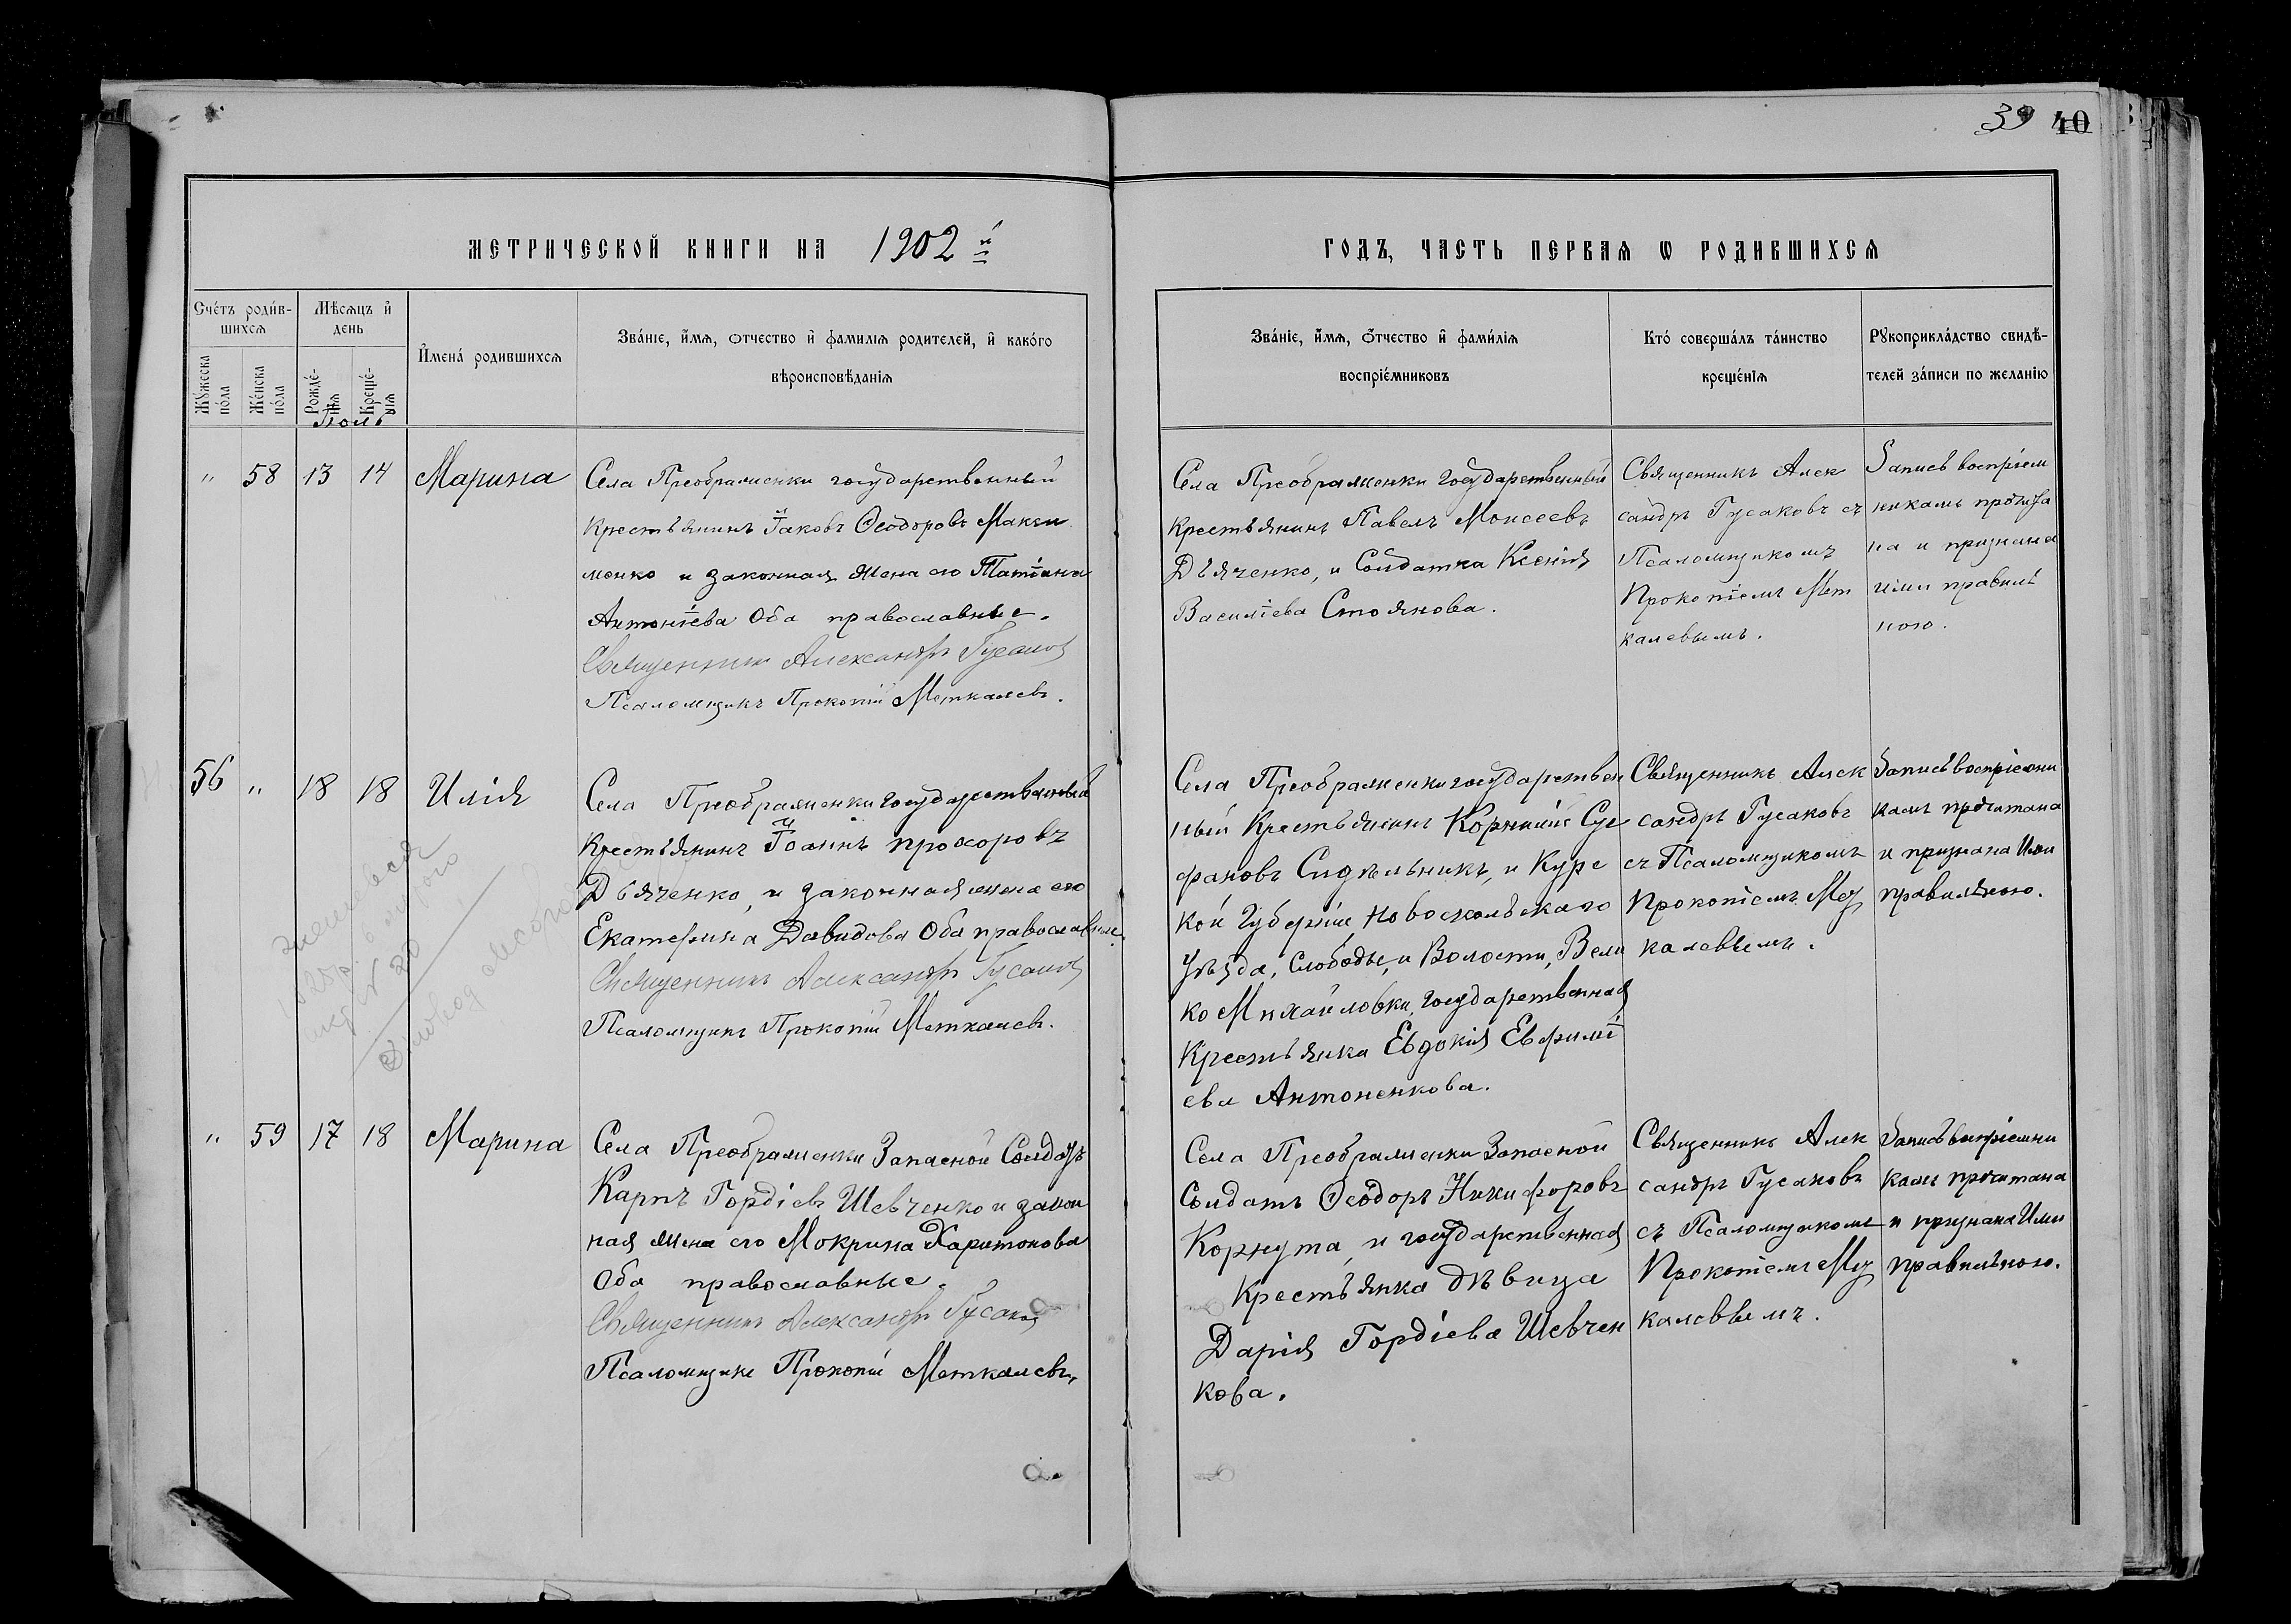 39 40
МЕТРИЧЕСКОЙ КНИГИ НА 1902 й
ГОДЪ, ЧАСТЬ ПЕРВАЯ Ѡ РОДИВШИХСЯ
Сче́тъ роди́в-
шихся
Мѣсяцъ и҆
день
И҆мена́ родившихся
Зва́нїе, и҆́мя, ѻтчество и҆ фамилїя родителей, и҆ како́го
вѣроисповѣданїя
Мꙋжеска
по́ла
Же́нска
по́ла
Рожде́-
нїя
Креще́-
нїя
Іюль
Зва́нїе, и҆́мя, ѻ҆́тчество и҆ фами́лїя
воспрїе́мниковъ
Кто́ соверша́лъ та́инство
креще́нїя
Рꙋкоприкла́дство свидѣ́-
телей за́писи по желанїю
" 58 13 14 Марина
Села Преображенки государственный
крестьянинъ Іаковъ Ѳеодоровъ Макси
менко и законная жена его Татіана
Антоніева Оба православные.
Священникъ Александръ Гусаковъ
Псаломщикъ Прокопій Меткалевъ.
Села Преображенки государственный
крестьянинъ Павелъ Моисеевъ
Дьяченко, и Солдатка Ксенія
Василіева Стоянова.
Священникъ Алек
сандръ Гусаковъ съ
Псаломщикомъ
Прокопіемъ Мет
калевымъ.
Запись воспріем
никамъ прочита
на и признана
ими правиль
ною.
56 " 18 18 Илія
Села Преображенки государственный
крестьянинъ Іоаннъ прохоровъ
Дьяченко, и законная жена его
Екатерина Давидова Оба православные.
Священникъ Александръ Гусаковъ
Псаломщикъ Прокопій Меткалевъ.
Села Преображенки государствен
ный Крестьянинъ Корнилій Сте
фановъ Сидельникъ, и Курс
кой Губерніи, Новоскольскаго
Уѣзда, Слободы, и Волости, Вели
ко Михайловки, государственная
Крестьянка Евдокія Евфимі
ева Антоненкова.
Священникъ Алек
сандръ Гусаковъ
съ Псаломщикомъ
Прокопіемъ Мет
калевымъ.
Запись воспріемни
камъ прочитана
и признана Ими
правильною.
" 59 17 18 Марина
Села Преображенки Запасной Солдатъ
Карпъ Гордіевъ Шевченко и закон
ная жена его Мокрина Харитонова
Оба православные.
Священникъ Александръ Гусаковъ
Псаломщикъ Прокопій Меткалевъ.
Села Преображенки Запасной
Солдатъ Ѳеодоръ Никифоровъ
Корнута, и государственная
Крестьянка дѣвица
Дарія Гордіева Шевчен
кова.
Священникъ Алек
сандръ Гусаковъ
съ Псаломщикомъ
Прокопіемъ Мет
калевымъ.
Запись воспріемни
камъ прочитана
и признана Ими
правильною.